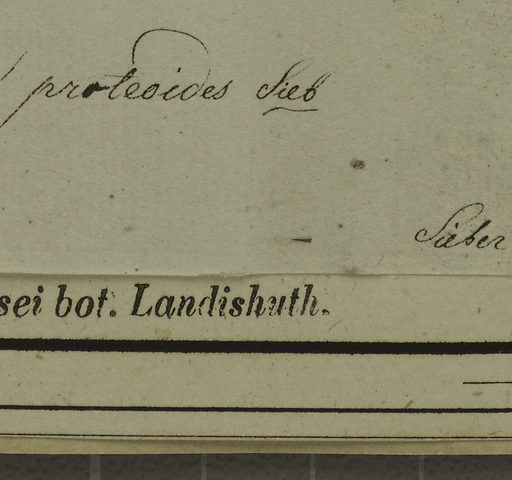 proteoides Sieb
Sieber
sei bot. Landishuth.